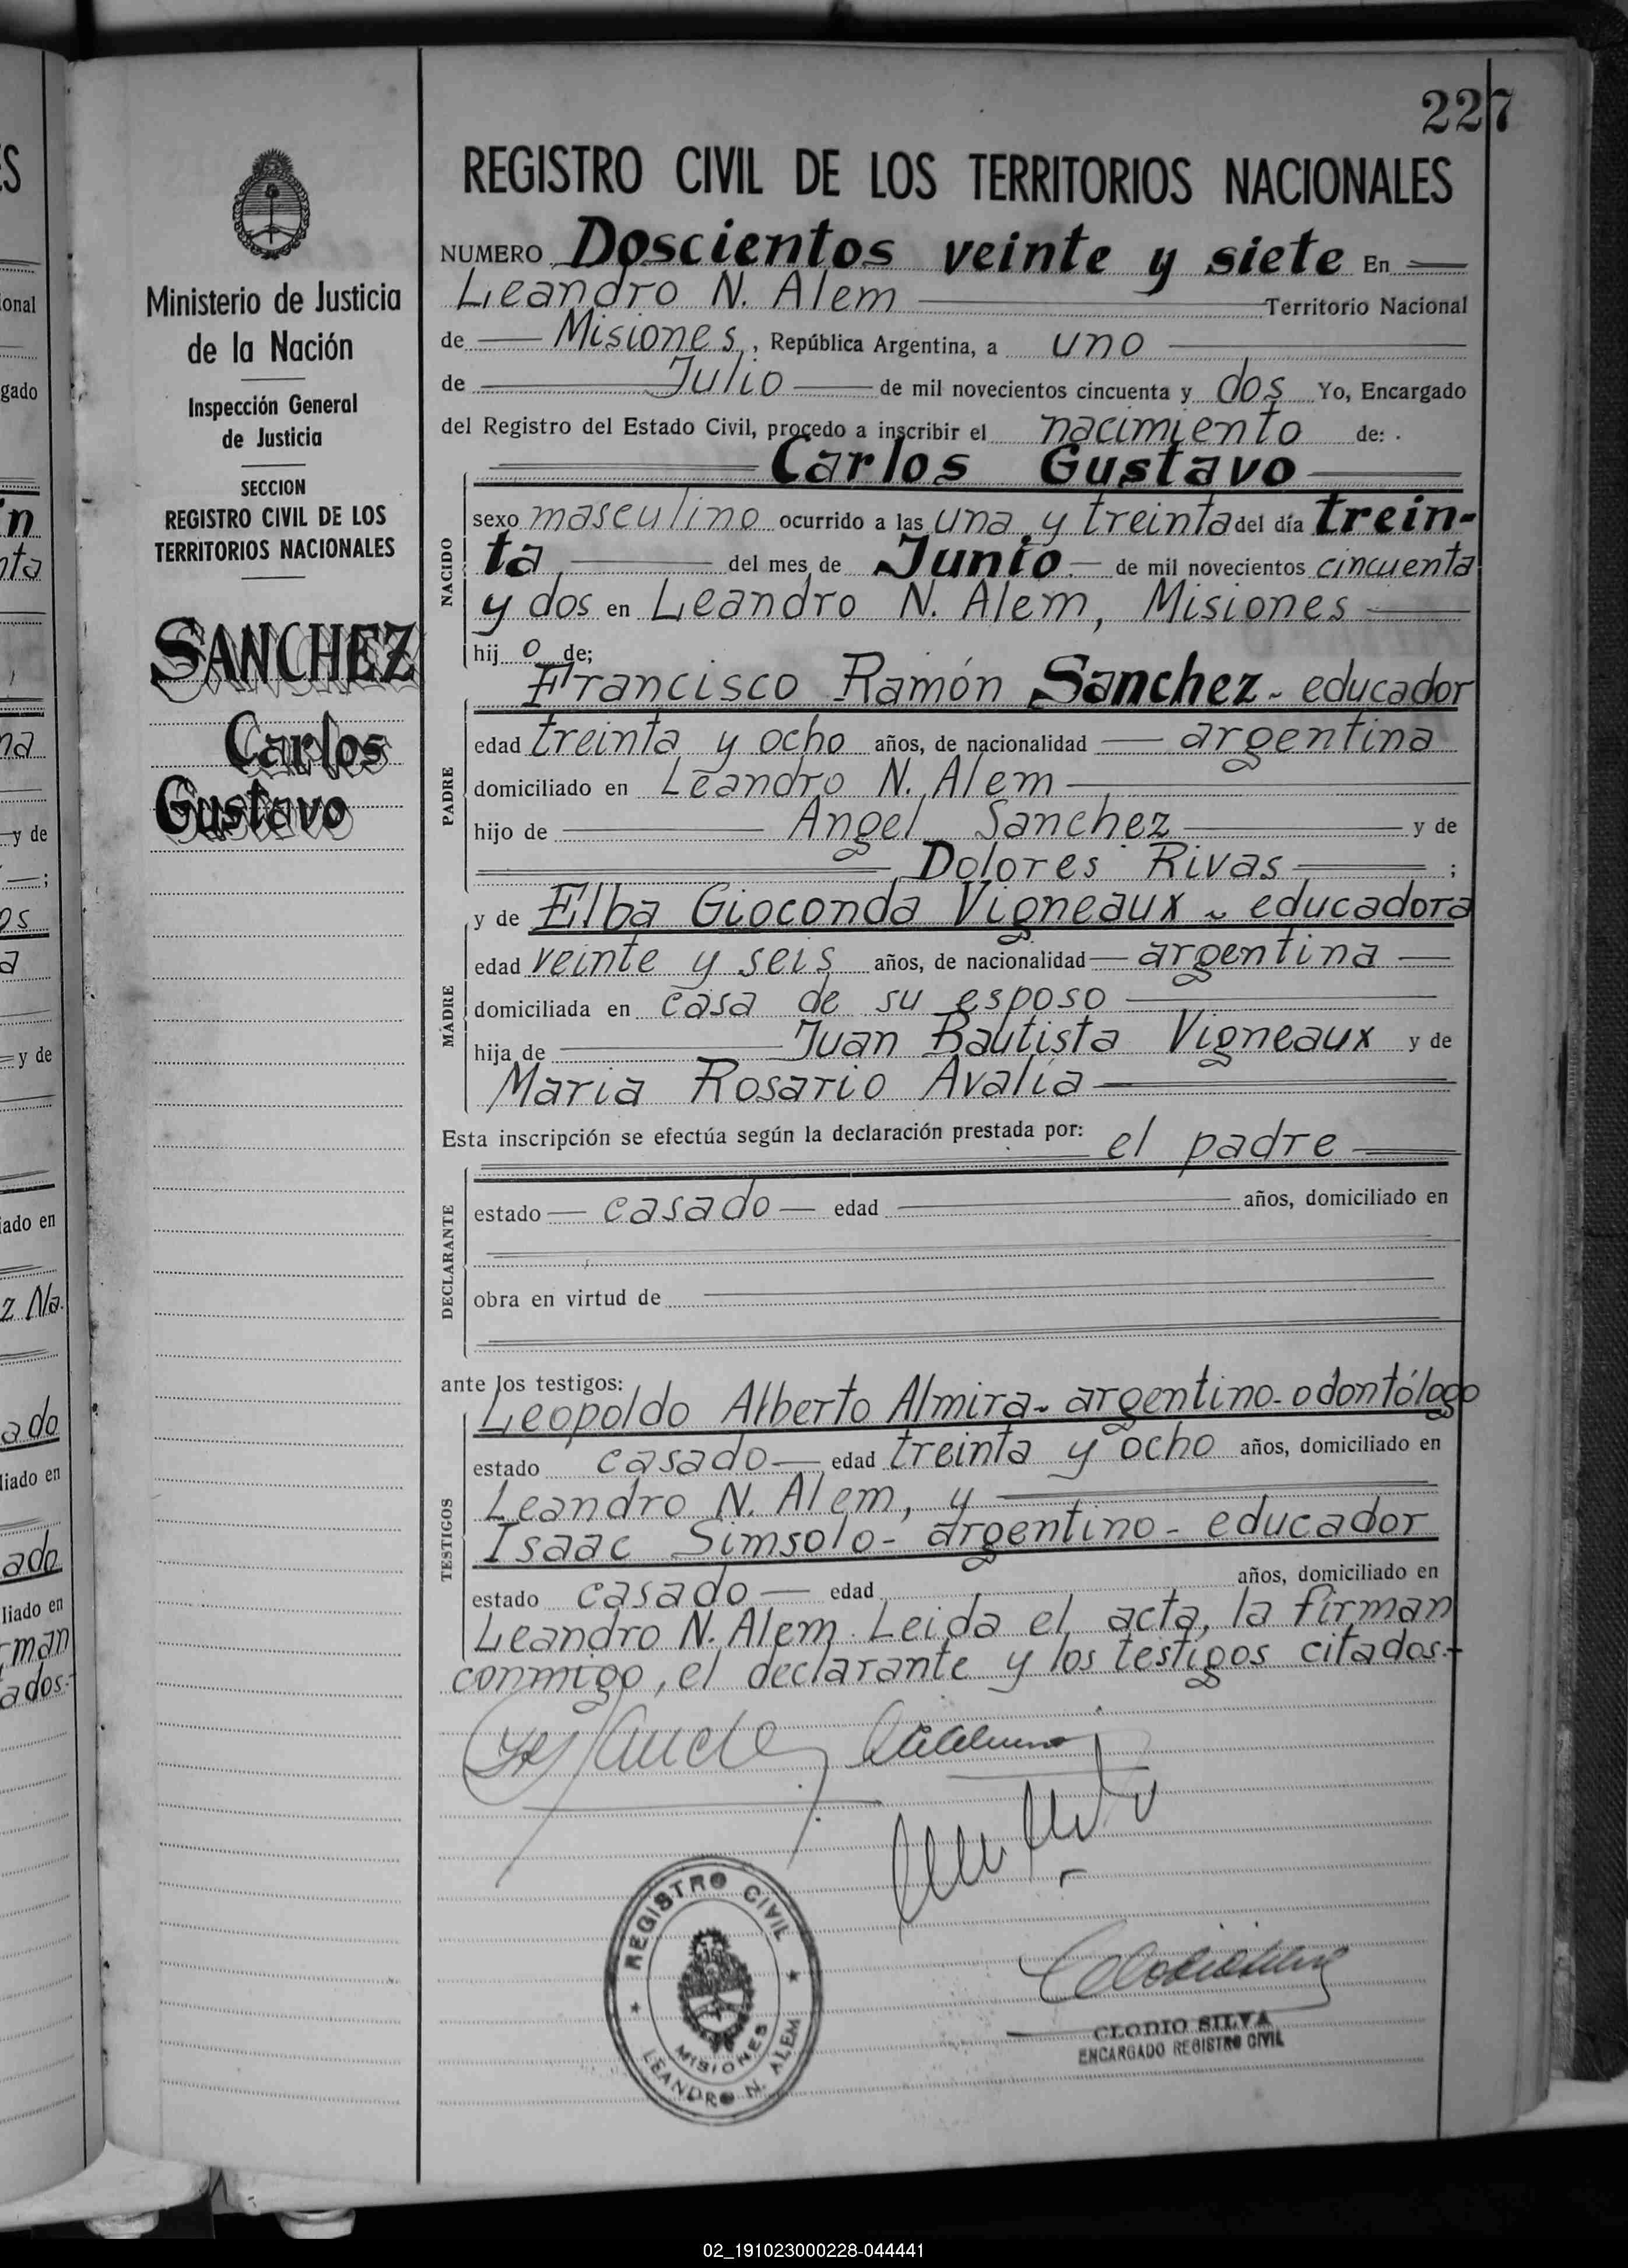 227
Ministerio de Justicia
de la Nación
Inspección General
de Justicia
SECCION
REGISTRO CIVIL DE LOS
TERRITORIOS NACIONALES
SANCHEZ
Carlos
Gustavo
REGISTRO CIVIL DE LOS TERRITORIOS NACIONALES
NUMERO Doscientos veinte y siete En
Leandro N. Alem Territorio Nacional
de Misiones, República Argentina, a uno
de Julio de mil novecientos cincuenta y dos Yo, Encargado
del Registro del Estado Civil, procedo a inscribir el nacimiento de:
Carlos Gustavo
NACIDO
sexo masculino ocurrido a las una y treinta del día trein-
ta del mes de Junio de mil novecientos cincuenta
y dos en Leandro N. Alem, Misiones
hij o de;
PADRE
Francisco Ramón Sanchez - educador
edad treinta y ocho años, de nacionalidad argentina
domiciliado en Leandro N. Alem
hijo de Angel Sanchez y de
Dolores Rivas ;
MADRE
y de Elba Gioconda Vigneaux - educadora
edad veinte y seis años, de nacionalidad argentina
domiciliada en casa de su esposo
hija de Juan Bautista Vigneaux y de
Maria Rosario Avalía
Esta inscripción se efectúa según la declaración prestada por: el padre
DECLARANTE
estado casado edad años, domiciliado en
obra en virtud de
ante los testigos:
TESTIGOS
Leopoldo Alberto Almira - argentino - odontólogo
estado casado edad treinta y ocho años, domiciliado en
Leandro N. Alem, y
Isaac Simsolo - argentino - educador
estado casado edad años, domiciliado en
Leandro N. Alem. Leida el acta, la firman
conmigo, el declarante y los testigos citados.-
REGISTRO CIVIL
MISIONES
LEANDRO N. ALEM
CLODIO SILVA
ENCARGADO REGISTRO CIVIL
02_191023000228-044441